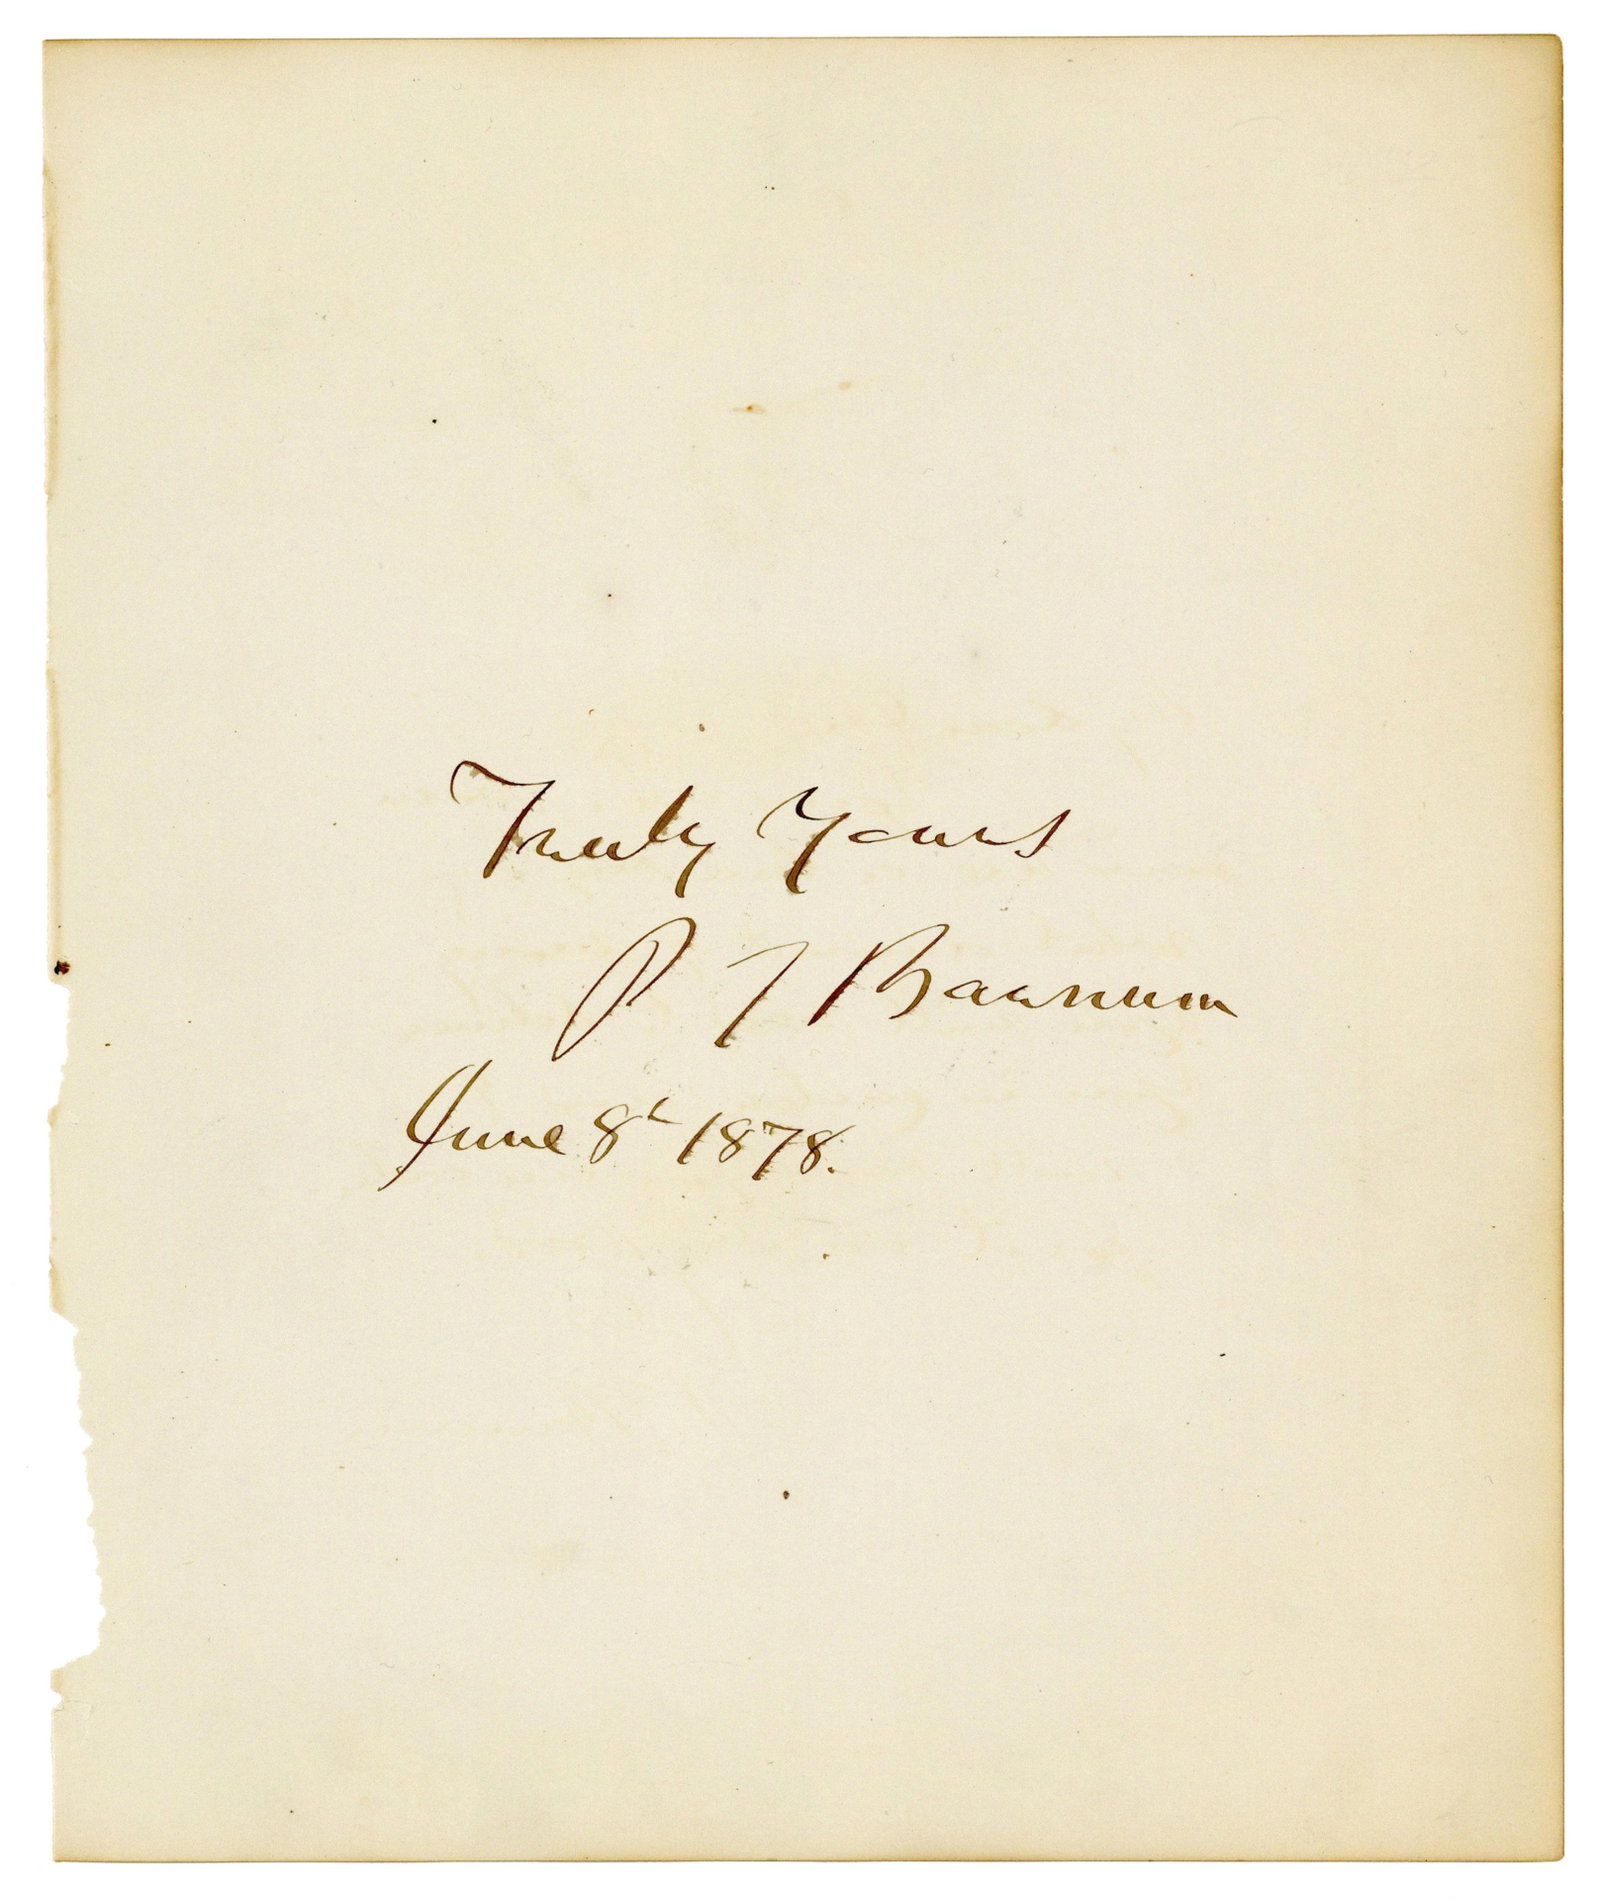 Truly Yours
P T Barnum
June 8th 1878.